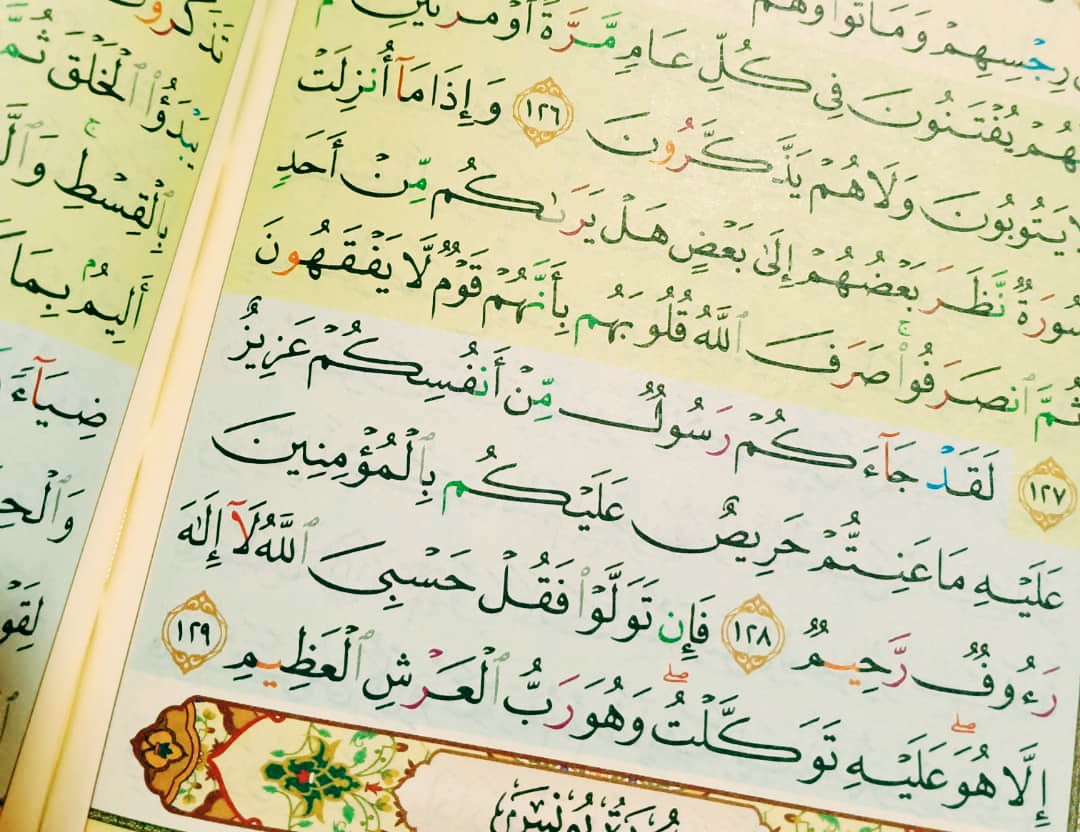 رِجْسِهِمْ وَمَاتُوا۟ وَهُمْ
هُمْ يُفْتَنُونَ فِى كُلِّ عَامٍ مَّرَّةً أَوْ مَرَّتَيْنِ
يَتُوبُونَ وَلَا هُمْ يَذَّكَّرُونَ ١٢٦ وَإِذَا مَآ أُنزِلَتْ
سُورَةٌ نَّظَرَ بَعْضُهُمْ إِلَىٰ بَعْضٍ هَلْ يَرَىٰكُم مِّنْ أَحَدٍ
ثُمَّ ٱنصَرَفُوا۟ ۚ صَرَفَ ٱللَّهُ قُلُوبَهُم بِأَنَّهُمْ قَوْمٌ لَّا يَفْقَهُونَ
١٢٧ لَقَدْ جَآءَكُمْ رَسُولٌ مِّنْ أَنفُسِكُمْ عَزِيزٌ
عَلَيْهِ مَا عَنِتُّمْ حَرِيصٌ عَلَيْكُم بِٱلْمُؤْمِنِينَ
رَءُوفٌ رَّحِيمٌ ١٢٨ فَإِن تَوَلَّوْا۟ فَقُلْ حَسْبِىَ ٱللَّهُ لَآ إِلَٰهَ
إِلَّا هُوَ ۖ عَلَيْهِ تَوَكَّلْتُ ۖ وَهُوَ رَبُّ ٱلْعَرْشِ ٱلْعَظِيمِ ١٢٩
سُورَةُ يُونُسَ
تَذَكَّرُونَ
يَبْدَؤُا۟ ٱلْخَلْقَ ثُمَّ
بِٱلْقِسْطِ ۚ وَٱلَّ
أَلِيمٌۢ بِمَا
ضِيَآءً